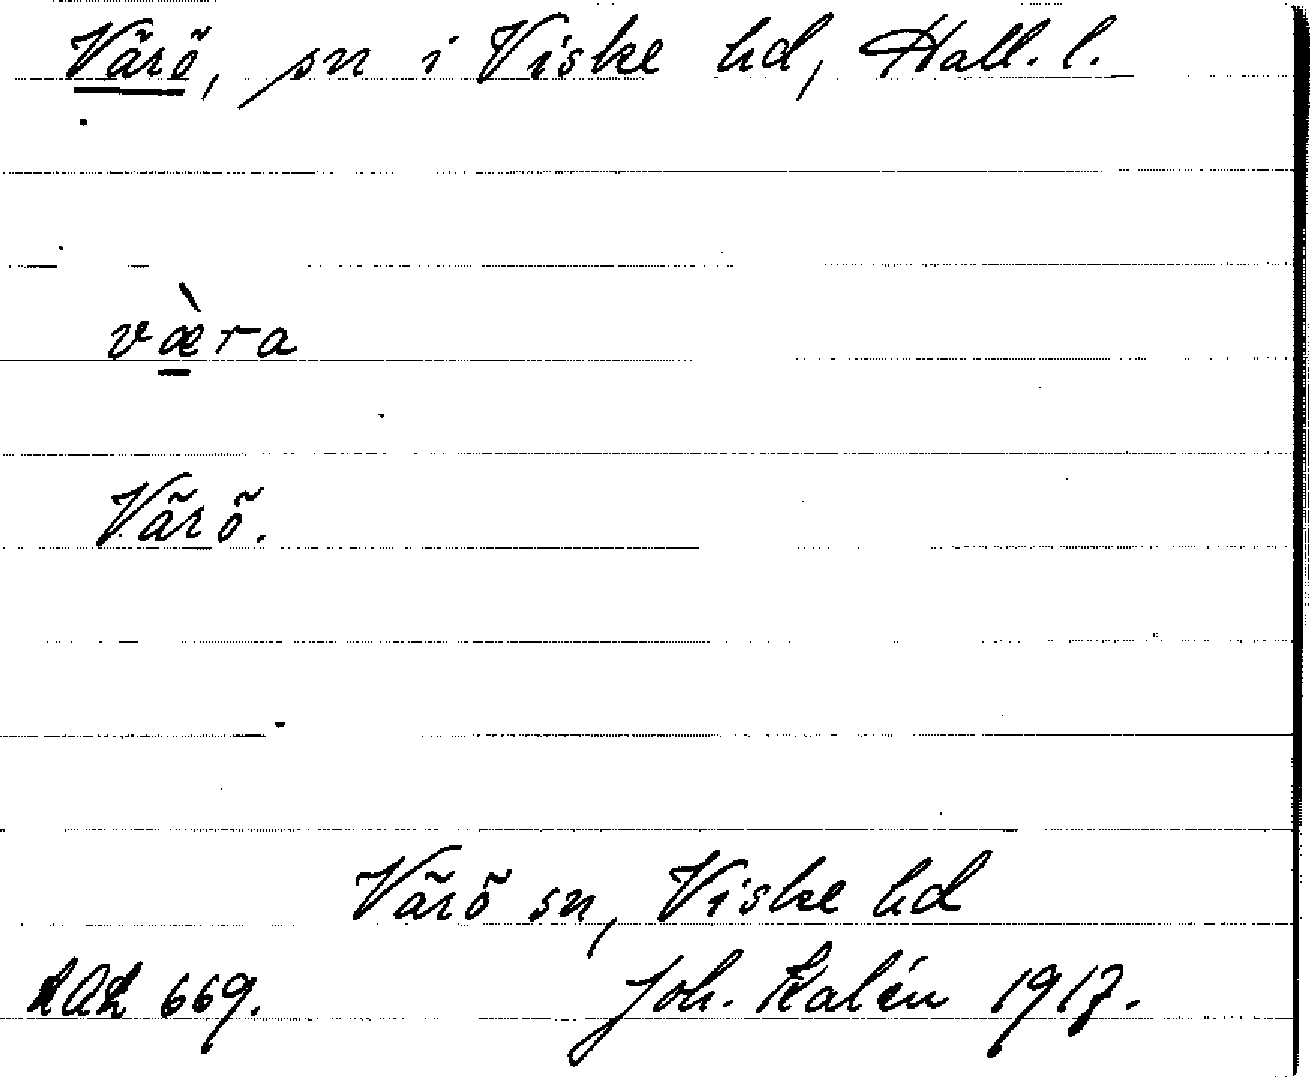 Värö, sn i Viske hd, Hall. l.
væ̀ra
Värö.
Värö sn, Viske hd
LAL 669. Joh. Kalén 1917.